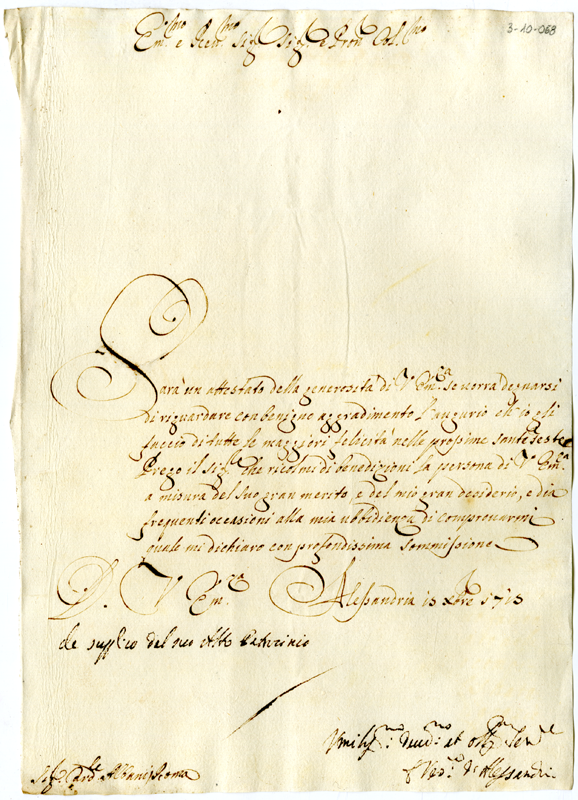 3-10-068
Em.mo e Rev.mo Sig.r Sig.r e Pron Col.mo
Sarà un attestato della generosità di V Em.za se verrà degnarsi
di riguardare con benigno aggradimento l'augurio ch'io gli
faccio di tutte le maggiori felicità nelle prossime sante feste
Prego il Sig.re che ricolmi di benedizioni la persona di V Em.za
a misura del suo gran merito, e del mio gran desiderio, e dia
frequenti occasioni alla mia ubbidienza di comprovarmi
quale mi dichiaro con profondissima sommissione
D. V Em.za Alessandria 13 Xbre 1713
del suo Alto Patrocinio
Umiliss.mo Dev.mo et Obl.mo Ser.re
Il Ves.o di Alessandria
Sig. Card.le Albani Roma